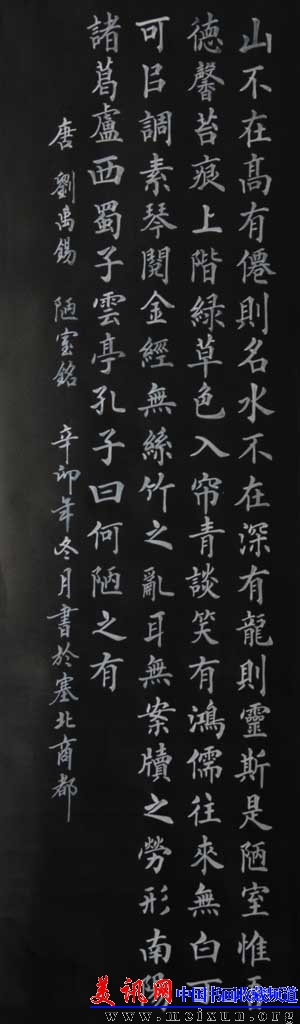 山不在高有僊則名水不在深有龍則靈斯是陋室惟吾
德馨苔痕上階綠草色入帘青談笑有鴻儒往來無白丁
可㠯調素琴閱金經無絲竹之亂耳無案牘之勞形南陽
諸葛盧西蜀子雲亭孔子曰何陋之有
唐 劉禹錫 陋室銘 辛卯年冬月書於塞北商都
美讯网 中国书画收藏频道
www.meixun.org